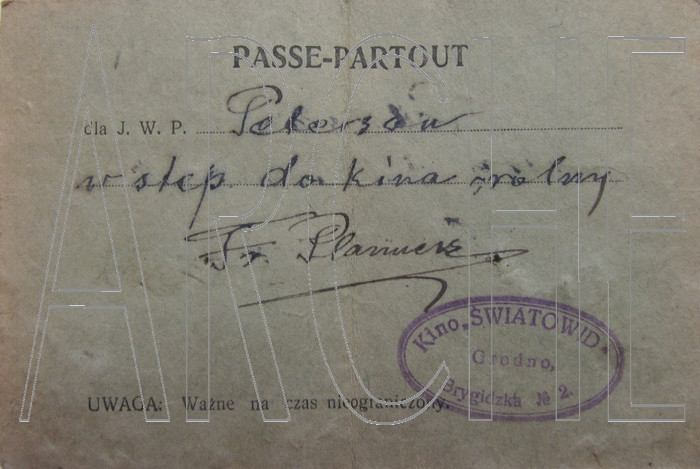 PASSE-PARTOUT
dla J. W. P. Peterson
wstęp do kina wolny
Fr.
Kino „ŚWIATOWID"
Grodno,
Brygidzka № 2.
UWAGA: Ważne na czas nieograniczony.
ARCHE